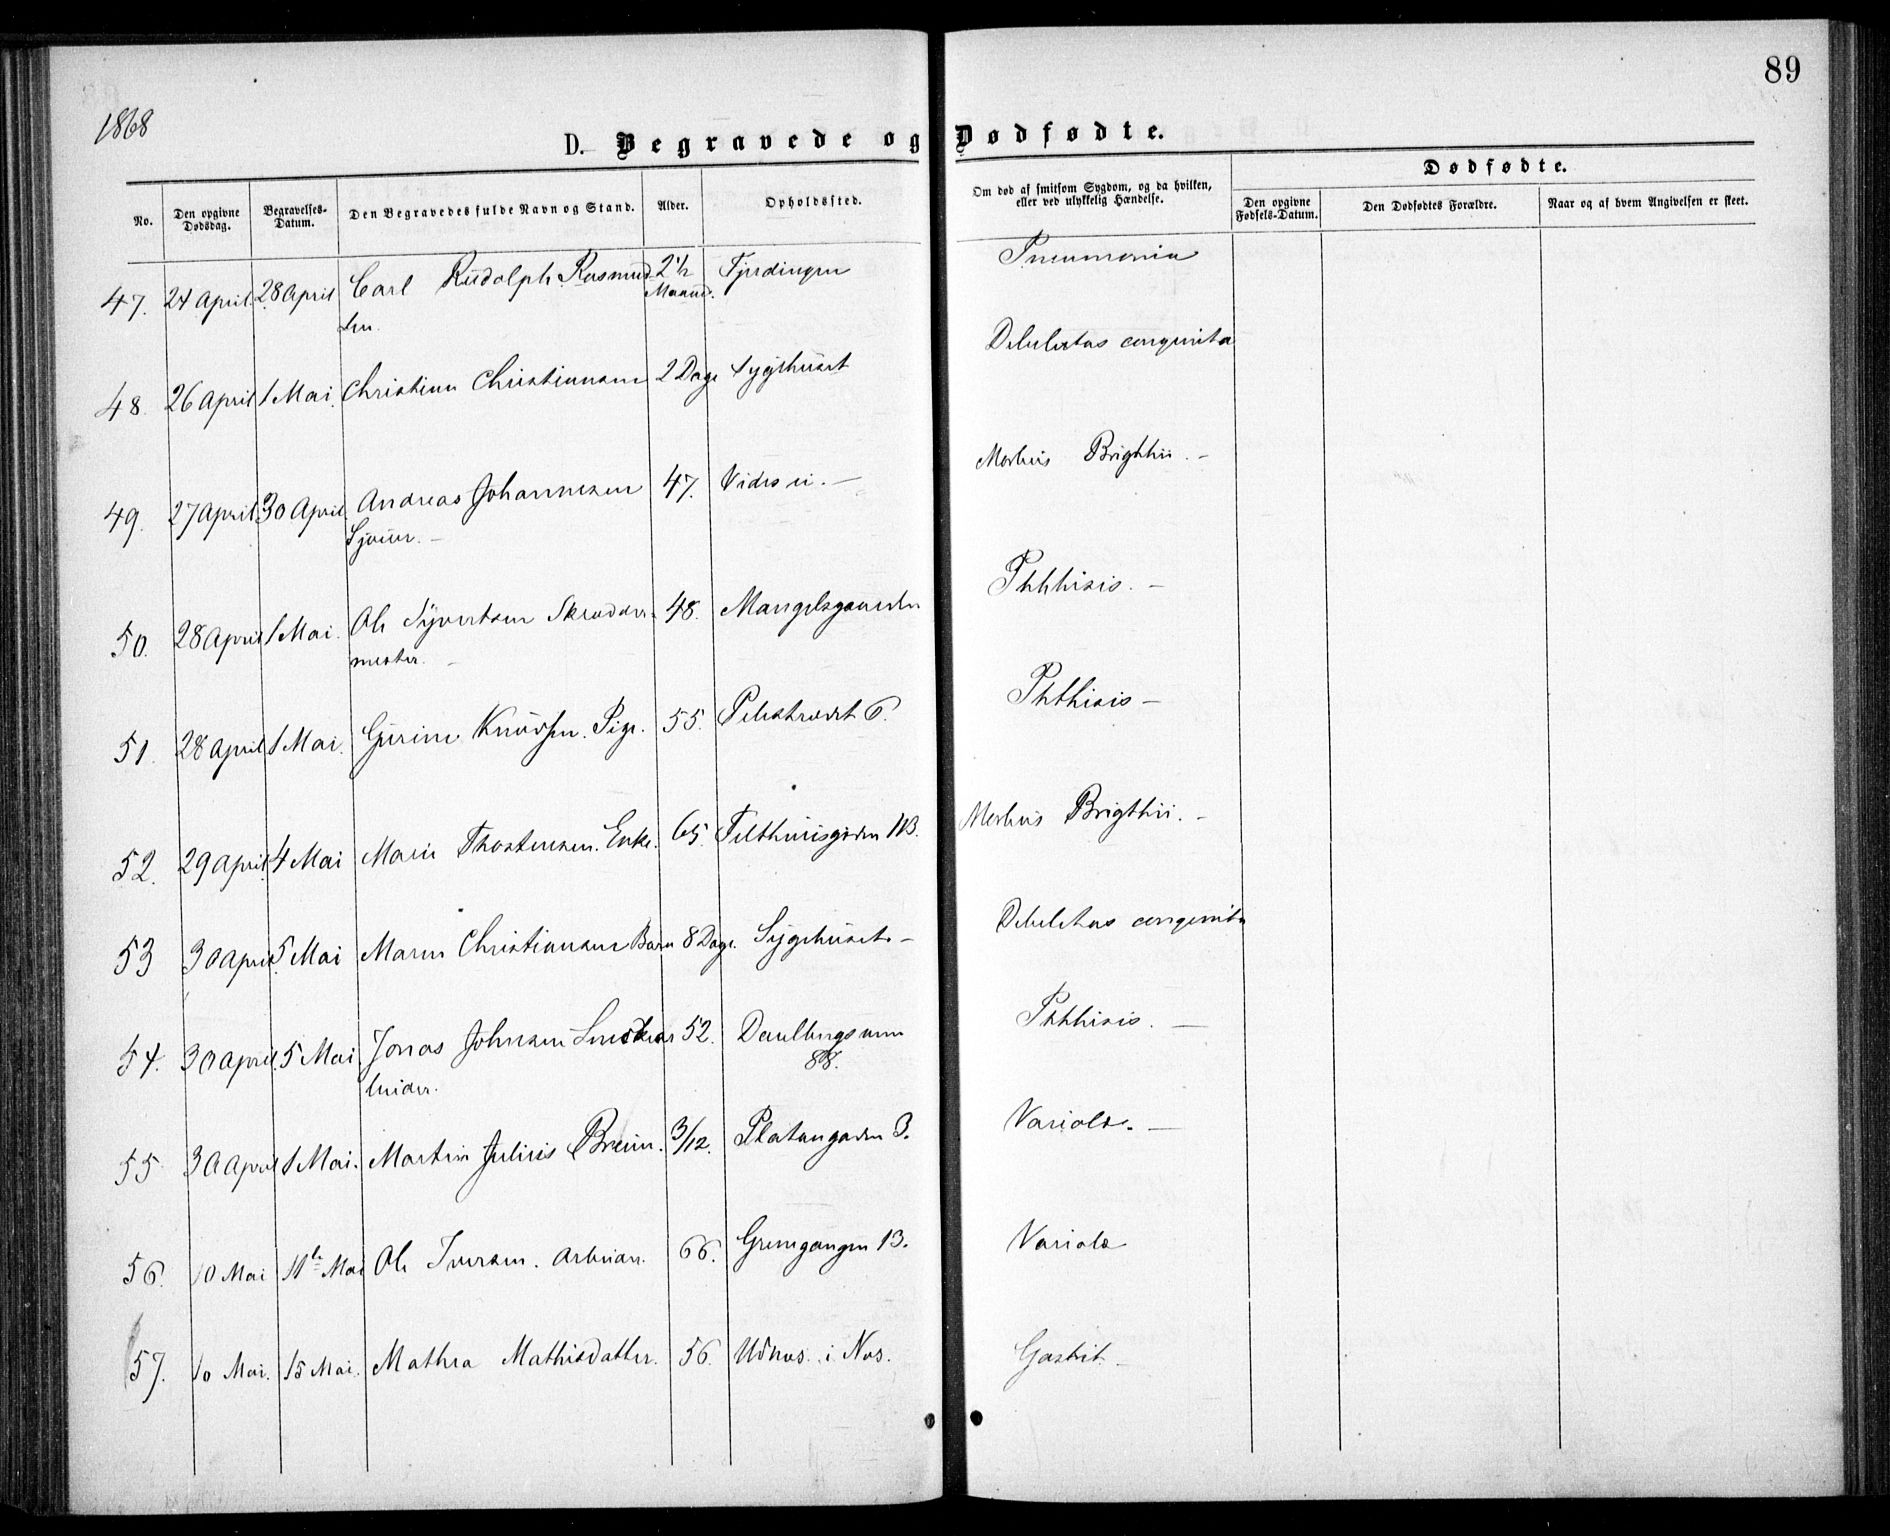 1868
89
D. Begravede og Dødfødte.
No. Den opgivne Dødsdag. Begravelses-Datum. Den Begravedes fulde Navn og Stand. Alder. Opholdssted. Om død af smitsom Sygdom, og da hvilken, eller ved ulykkelig Hændelse. Dødfødte.
Den opgivne Fødsels-Datum. Den Dødfødtes Forældre. Naar og af hvem Angivelsen er skeet.
47. 24 April 28 April Carl Rudolph Rasmud- 2 1/2 Maaned. Fjerdingen Pneumonia
sen.
48. 26 April 1 Mai. Christian Christiansen 2 Dage Sygehuset Debilitas congenita
49. 27 April 30 April Andreas Johannesen 47. Morbus Brighthii. -
Sjouer. -
50. 28 April 1 Mai. Ole Syvertsen Skrædder- 48. Mangelsgaarden Phthisis. -
mester. -
51. 28 April 1 Mai. Gurine Knudsen. Pige. 55. Pilestrædet 6. Phthisis -
52. 29 April 4 Mai Marie Thostensen. Enke. 65. Telthuusgaden 11B. Morbus Brigthii. -
53 30 April 5 Mai Maren Christiansen Barn 8 Dage. Sygehuset. - Debilitas congenita
54. 30 April. 5 Mai Jonas Johnsen 52. 88. Phthisis. -
55 30 April 1 Mai. Martin Julius Bruun. 3/12. Platougaden 3. Variola. -
56. 10 Mai 11te Mai Ole Iversen. Arbeider. 66. Grønegangen 13. Variola
57. 10 Mai. 15 Mai. Mathea Mathisdatter. 56. Udnæs. i Næs. Gastrit. -